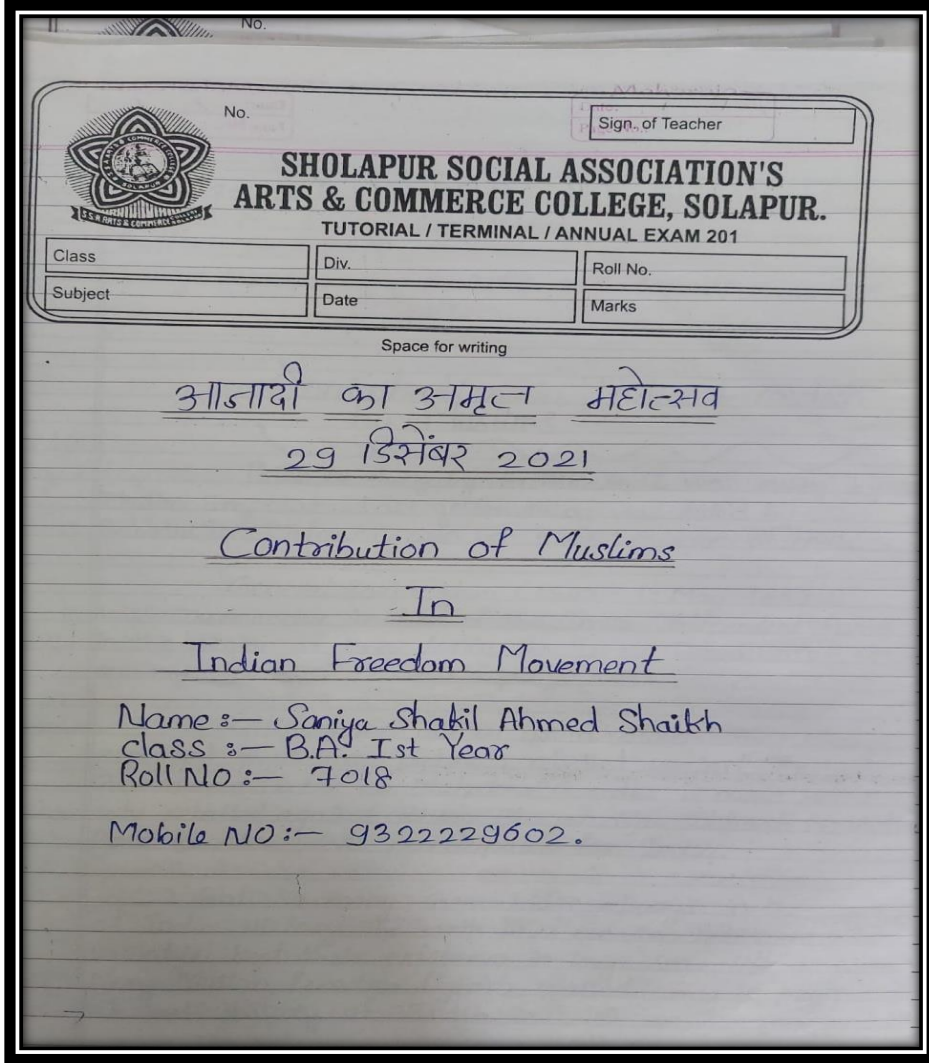 No.
No.
Sign. of Teacher
SHOLAPUR SOCIAL ASSOCIATION'S
ARTS & COMMERCE COLLEGE, SOLAPUR.
TUTORIAL / TERMINAL / ANNUAL EXAM 201
Class
Div.
Roll No.
Subject
Date
Marks
Space for writing
आजादी का अमृत महोत्सव
29 डिसेंबर 2021
Contribution of Muslims
In
Indian Freedom Movement
Name :— Saniya Shakil Ahmed Shaikh
class :— B.A. Ist Year
Roll NO :— 7018
Mobile NO :— 9322229602.